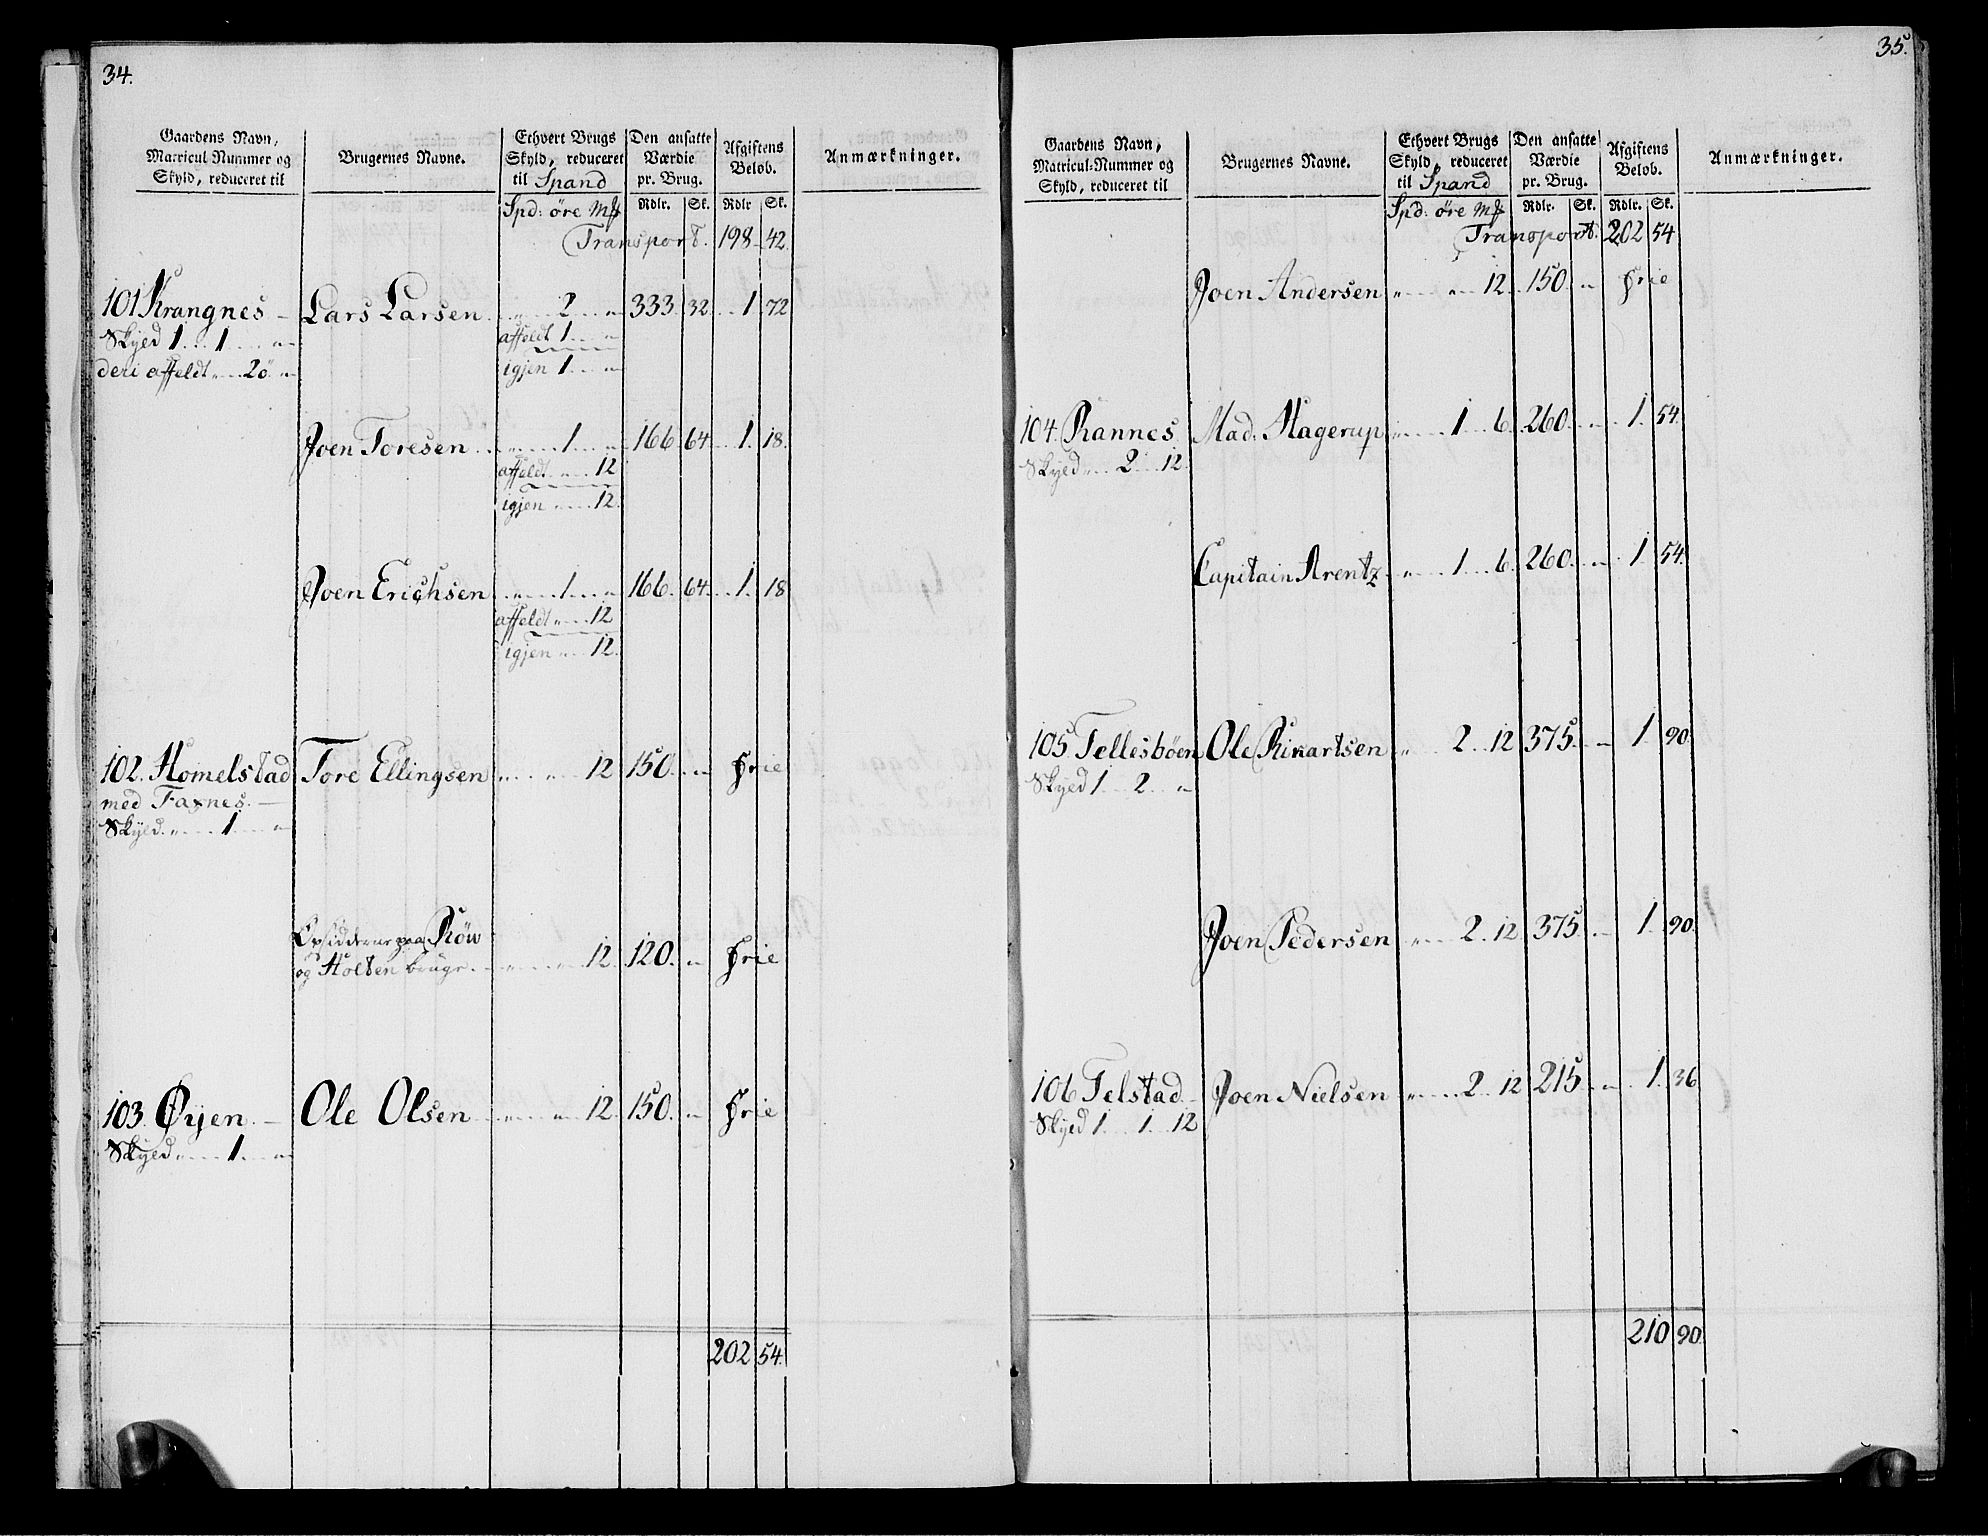 34.
Gaardens Navn, Matricul Nummer og Skyld, reduceret til
Brugernes Navne.
Ethvert Brugs Skyld, reduceret til Spand
Den ansatte Værdie pr. Brug.
Afgiftens Beløb.
Anmærkninger.
Spd: øre Mk Rdlr. Sk. Rdlr Sk.
Transport. 198 42.
101 Krangnes Lars Larsen 2 333 32 1 72
Skyld 1 1 affeldt 1
deri affeldt 2ö igjen 1
Joen Toresen 1 166 64 1 18.
affeldt 12
igjen 12.
Joen Erichsen 1 166. 64 1 18
affeldt 12
igjen 12.
102. Homelstad Tore Ellingsen 12 150. frie
med Faxnes.
Skyld 1
Opsidderne paa Röw
og Holten bruge 12. 120. frie
103. Øyen Ole Olsen 12 150. frie
Skyld 1
202 54.
35.
Gaardens Navn, Matricul-Nummer og Skyld, reduceret til
Brugernes Navne.
Ethvert Brugs Skyld, reduceret til Spand
Den ansatte Værdie pr. Brug.
Afgiftens Beløb.
Anmærkninger.
Spd: øre Mk Rdlr. Sk. Rdlr. Sk.
Transport. 202 54
Joen Andersen 12 150 frie
104. Rannes Mad. Hagerup 1 6. 260. 1 54.
Skyld 2 12.
Capitain Arentz 1 6. 260. 1 54.
105 Tellesböen Ole Rikartsen 2 12 375. 1 90.
Skyld 1 2
Joen Pedersen 2. 12 375. 1 90.
106 Telstad Joen Nielsen 2 12 215 1. 36.
Skyld 1 1 12
210 90.